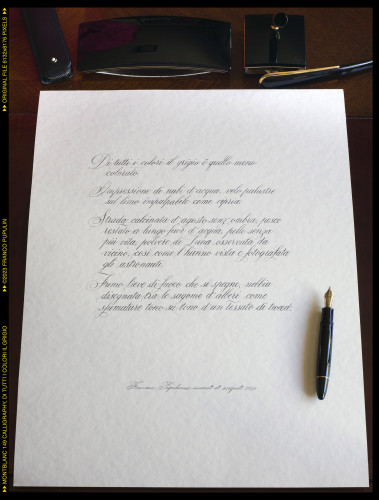 Di tutti i colori il grigio è quello meno
colorato.
Impressione di nubi d'acqua, velo palustre
sul limo impalpabile come cipria.
Strada calcinata d'agosto senz'ombra, pesce
restato a lungo fuor d'acqua, pelle senza
più vita, polvere di Luna osservata da
vicino, così come l'hanno vista e fotografata
gli astronauti.
Fumo lieve di fuoco che si spegne, nebbia
disegnata tra le sagome d'alberi come
spimature tono su tono d'un tessuto di tweed.
ORIGINAL FILE 6132x8176 PIXELS
©2023 FRANCO PUPULIN
MONTBLANC 149 CALLIGRAPHY, DI TUTTI I COLORI IL GRIGIO